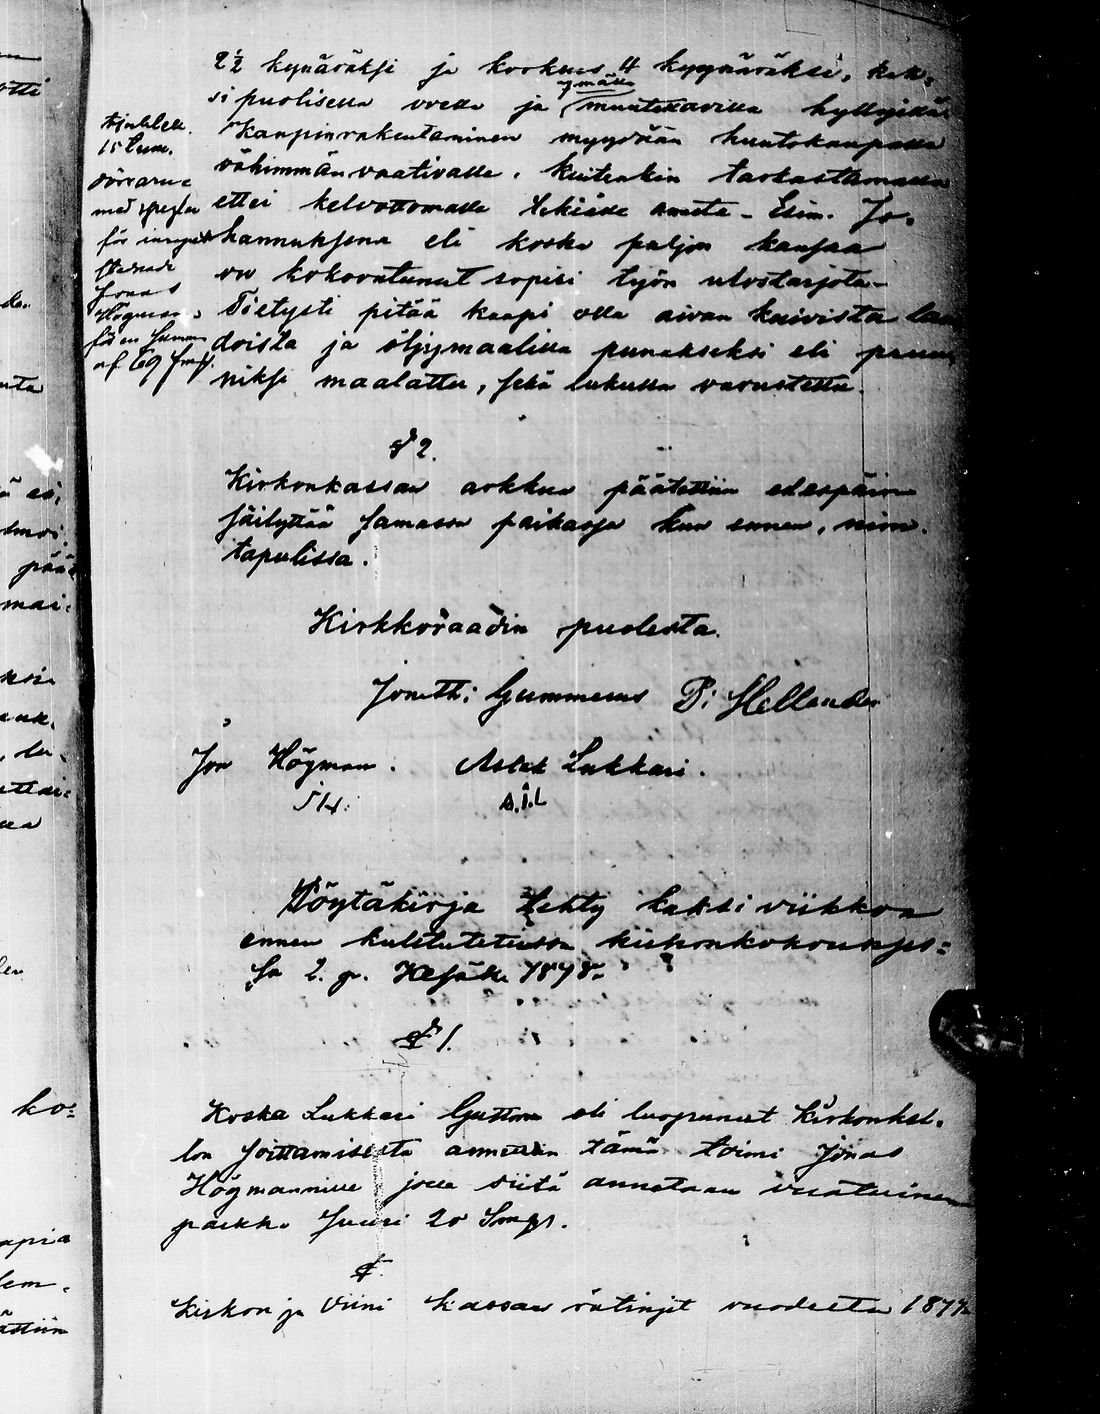 2½ kynäräksi ja korkeus 4 kyynäräksi, kak-
si puolisella ovella ja muutettavilla hyllyjillä
7 mällä
Kaapin rakentaminen myydään huutokaupalla
vähimmän vaativalle, kuitenkin tarkastamalla
ettei kelvottomalle tekiälle anneta - Esim. Jo-
hannuksena eli koska paljon kansaa
on kokoontunut sopisi työn ulostarjota-
Tietysti pitää kaapi olla aivan kuivista lau
doista ja öljymaalilla punaiseksi eli pruu
niksi maalattu, sekä lukulla varustettu.
15 tum.
med speglar
för
Jonas
Högman
för en summa
af 69 fmk.
§ 2.
Kirkonkassan arkkua päätettiin edespäin
säilyttää samassa paikassa kun ennen, nim.
tapulissa.
Kirkkoraadin puolesta.
Jonath: Gummerus P: Hellander
Jon Högman. Aslak Lukkari.
J H. A.J.L
Pöytäkirja tehty kaksi viikkoa
ennen kulututetussa kirkonkokoukses=
sa 2. p. Kesäk. 1878.
§ 1.
Koska Lukkari Guttorm oli luopunut Kirkonkel-
lon soittamisesta annettiin tämä toimi Jonas
Högmannille jolle siitä annetaan vuotuinen
palkka suuri 20 Smk.
§.
Kirkon ja Viini kassan rätingit vuodelta 1877
ko=